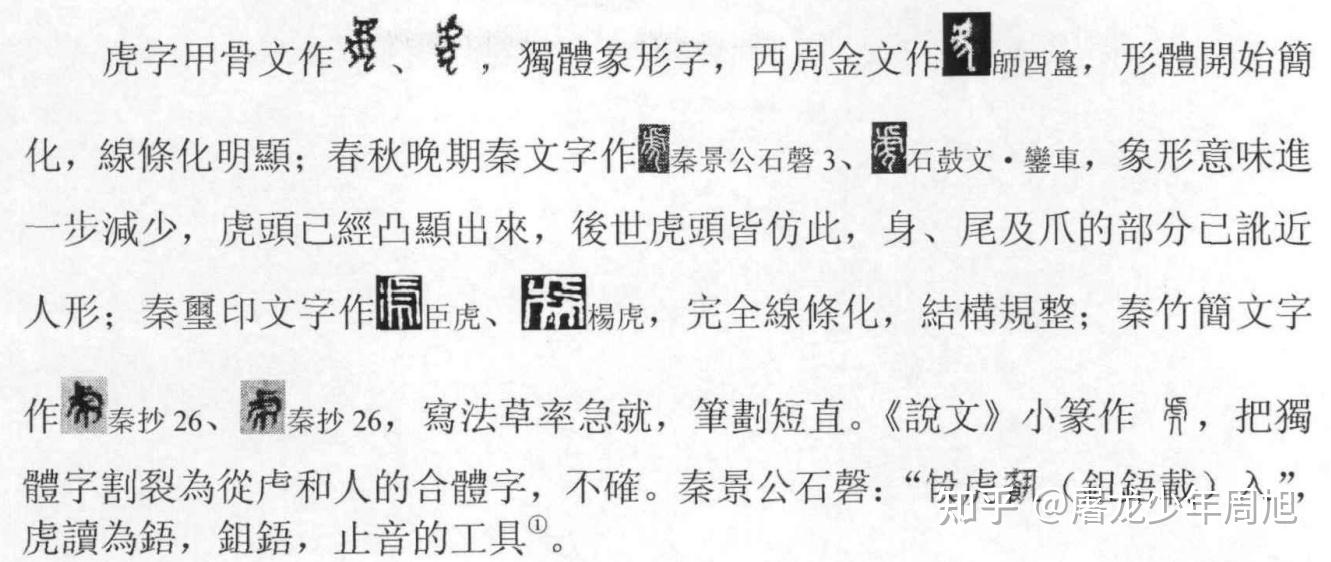 虎字甲骨文作、，獨體象形字，西周金文作師酉簋，形體開始簡
化，線條化明顯；春秋晚期秦文字作秦景公石磬3、石鼓文·鑾車，象形意味進
一步減少，虎頭已經凸顯出來，後世虎頭皆仿此，身、尾及爪的部分已訛近
人形；秦璽印文字作臣虎、楊虎，完全線條化，結構規整；秦竹簡文字
作秦抄26、秦抄26，寫法草率急就，筆劃短直。《說文》小篆作，把獨
體字割裂為從虍和人的合體字，不確。秦景公石磬：“虎（鉏鋙載）入”，
虎讀為鋙，鉏鋙，止音的工具①。
知乎 @屠龙少年周旭